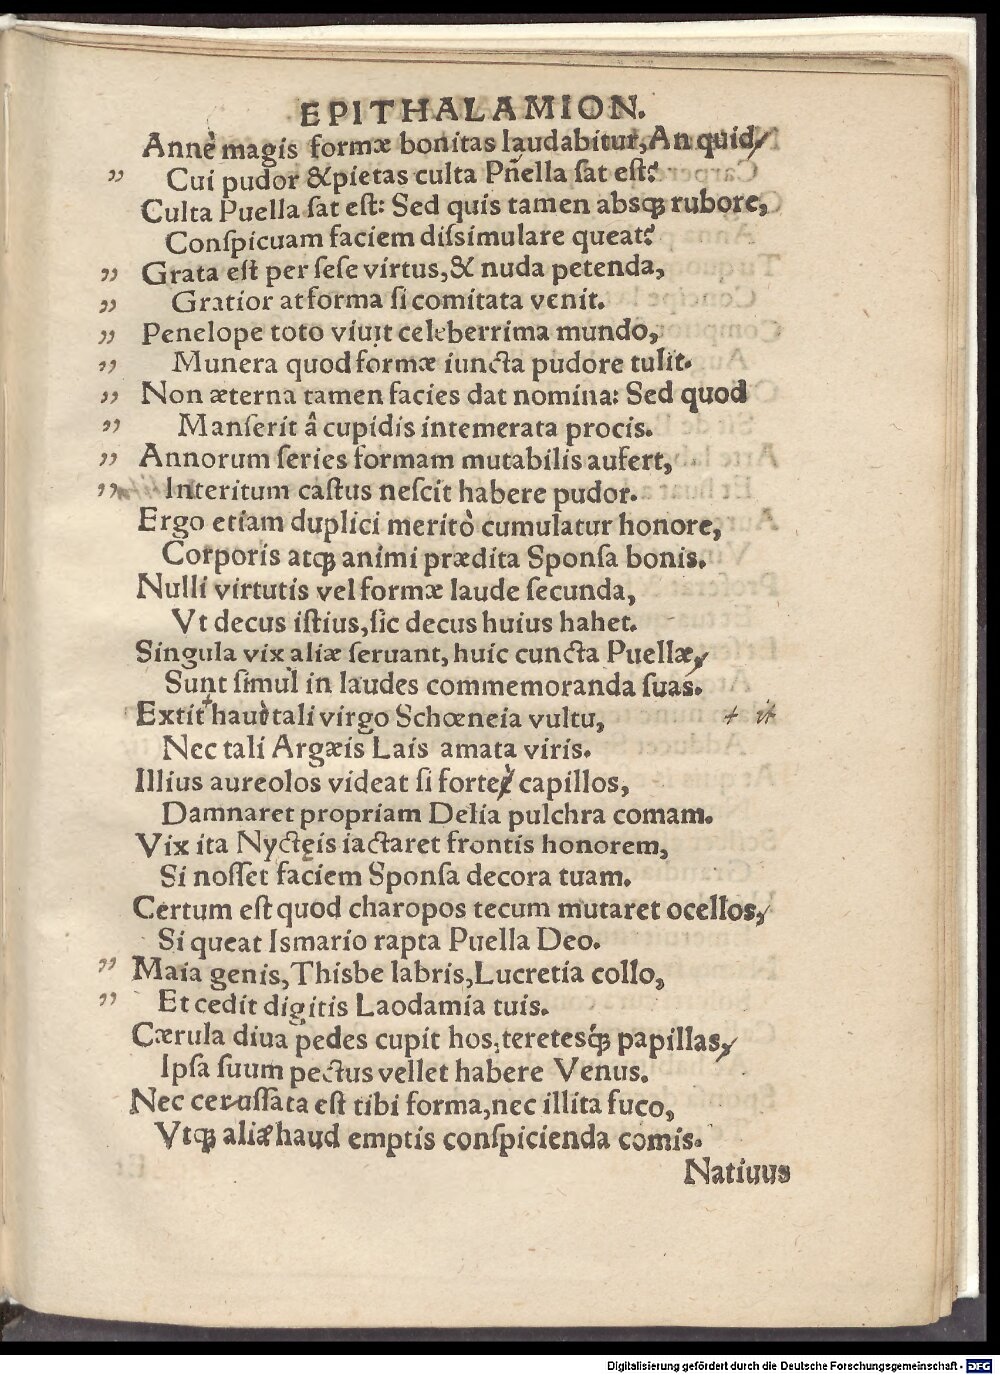 EPITHALAMION.
Annè magis formæ bonitas laudabitur, An quid,
” Cui pudor & pietas culta Pñella sat est?
Culta Puella sat est: Sed quis tamen absq; rubore,
Conspicuam faciem dissimulare queat?
” Grata est per sese virtus, & nuda petenda,
” Gratior at forma si comitata venit.
” Penelope toto viuit celeberrima mundo,
” Munera quod formæ iuncta pudore tulit.
” Non æterna tamen facies dat nomina: Sed quod
” Manserit â cupidis intemerata procis.
” Annorum series formam mutabilis aufert,
” Interitum castus nescit habere pudor.
Ergo etiam duplici meritò cumulatur honore,
Corporis atq; animi prædita Sponsa bonis.
Nulli virtutis vel formæ laude secunda,
Vt decus istius, sic decus huius hahet.
Singula vix aliæ seruant, huic cuncta Puellæ,
Sunt simul in laudes commemoranda suas.
Extit haud tali virgo Schœneia vultu, + it
Nec tali Argæis Lais amata viris.
Illius aureolos videat si forte capillos,
Damnaret propriam Delia pulchra comam.
Vix ita Nyctęis iactaret frontis honorem,
Si nosset faciem Sponsa decora tuam.
Certum est quod charopos tecum mutaret ocellos,
Si queat Ismario rapta Puella Deo.
” Maia genis, Thisbe labris, Lucretia collo,
” Et cedit digitis Laodamia tuis.
Cærula diua pedes cupit hos, teretesq́; papillas,
Ipsa suum pectus vellet habere Venus.
Nec cerussata est tibi forma, nec illita fuco,
Vtq; aliæ haud emptis conspicienda comis.
Natiuus
Digitalisierung gefördert durch die Deutsche Forschungsgemeinschaft - DFG